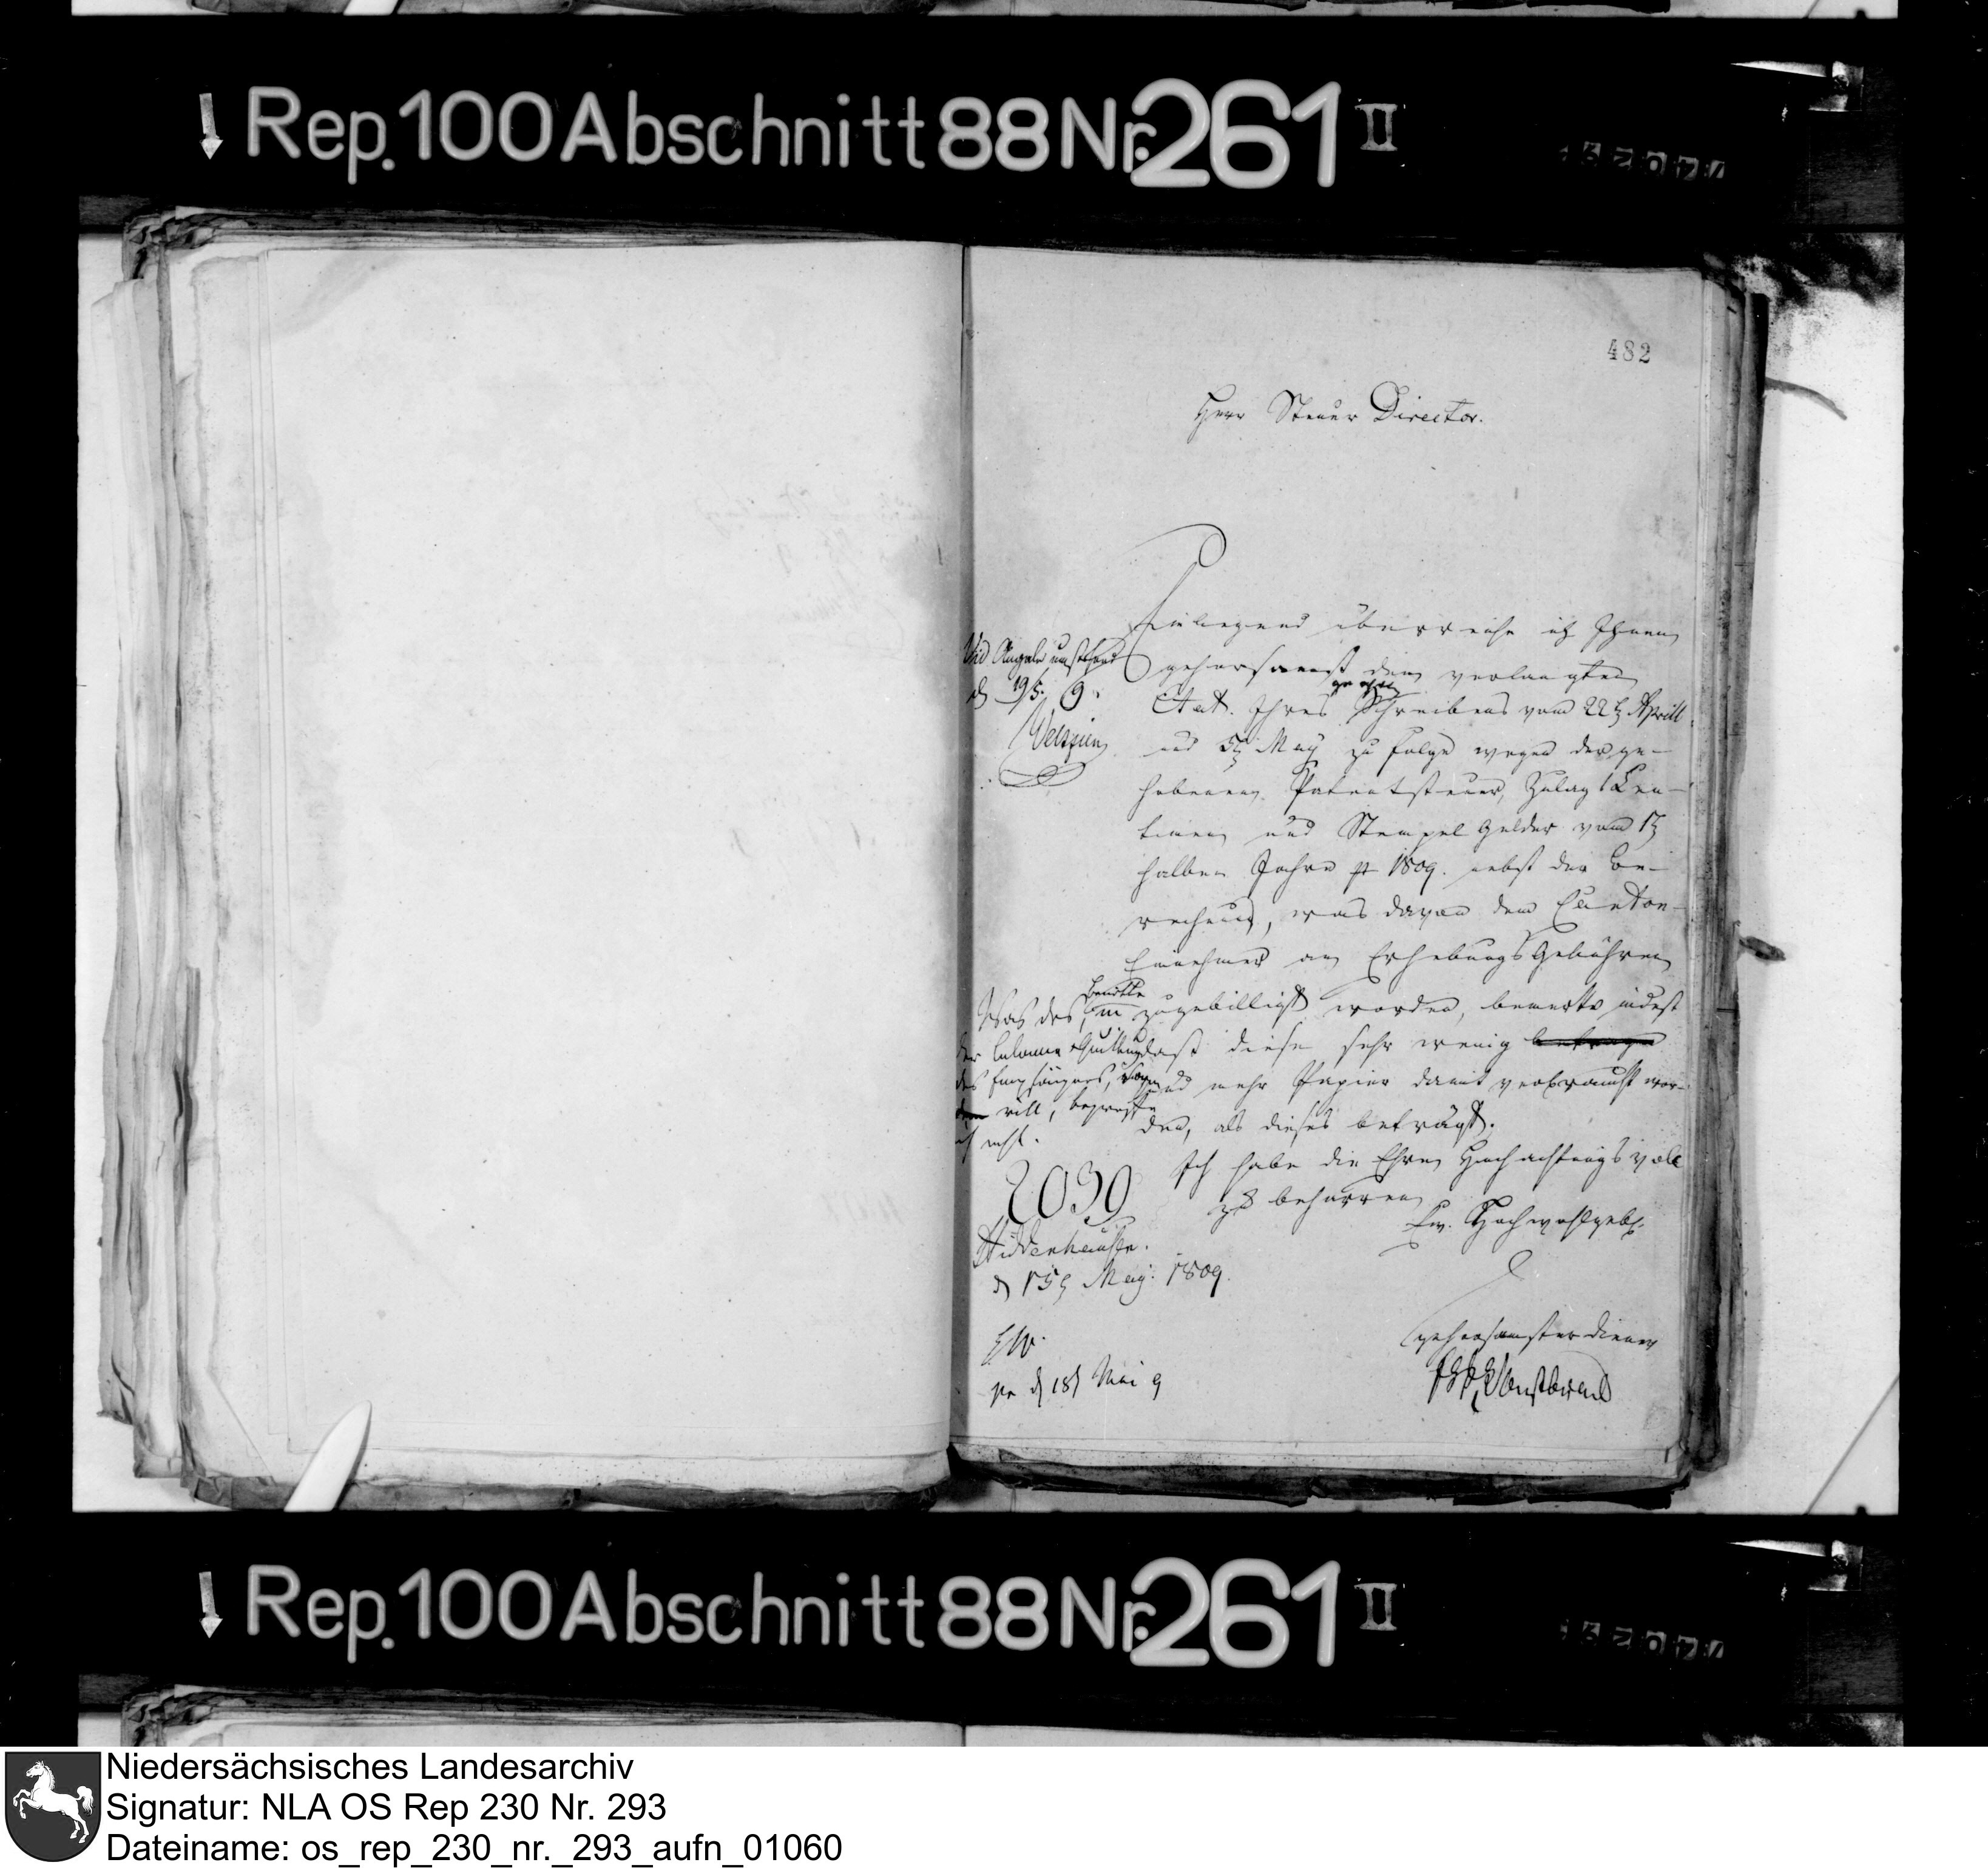 Rep. 100 Abschnitt 88 Nr. 261 II
482
Herr Steuer Director.
Einliegend überreiche ich Ihnen
gehorsamst den verlangten
Etat. Ihres Schreibens vom 22t Aprill
und 5t May zu folge wegen der ge-
hobenen Patentsteuer, Zulag Cen-
timen und Stempel Gelder vom 1t
halben Jahre pr 1809. nebst der Be-
rechnung, was davon dem Canton-
Einnehmer an Erhebungs Gebühren
zugebilligt worden, bemerke indeß
daß diese sehr wenig betragen
und mehr Papier damit verbraucht wor-
den, als dieses beträgt.
Ich habe die Ehre Hochachtungsvoll
zu beharren
Ew. Hochwohlgeb.
gehorsamster Diener
Vid Angabe umstehend
d 19/5. 9.
Was des
in
der Colonne Quittung
des Empfängers,
will,
ich nicht.
2039
Hiddenhausen.
d 15t May. 1809.
pr d 18t Mai 9
Rep. 100 Abschnitt 88 Nr. 261 II
Niedersächsisches Landesarchiv
Signatur: NLA OS Rep 230 Nr. 293
Dateiname: os_rep_230_nr._293_aufn_01060